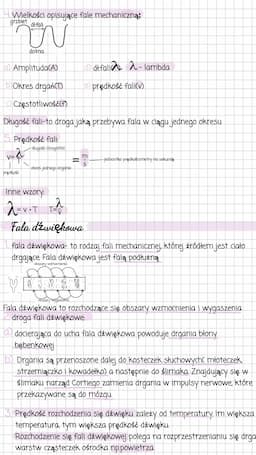 4. Wielkości opisujące falę mechaniczną:
grzbiet
dolina
a) Amplituda(A)
d) dł.fali λ λ - lambda
b) Okres drgań(T)
e) prędkość fali(v)
c) Częstotliwość(f)
Długość fali-to droga jaką przebywa fala w ciągu jednego okresu
5. Prędkość fali
długość fali
v=λ
okres jednego drgania
prędkość
= m
s
Inne wzory:
λ=v·T T=λ
v
Fala dźwiękowa
1. fala dźwiękowa- to rodzaj fali mechanicznej, której źródłem jest ciało
drgające. Fala dźwiękowa jest falą podłużną
Fala dźwiękowa to rozchodzące się obszary wzmocnienia i wygaszenia
2. droga fali dźwiękowe:
a) docierająca do ucha fala dźwiękowa powoduje drgania błony
bębenkowej
b) Drgania są przenoszone dalej do kosteczek słuchowych( młoteczek,
strzemiączko i kowadełko) a następnie do ślimaka. Znajdujący się w
ślimaku narząd Cortiego zamienia drgania w impulsy nerwowe, które
przekazywane są do mózgu.
3. Prędkość rozchodzenia się dźwięku zależy od temperatury. Im większa
temperatura, tym większa prędkość dźwięku.
Rozchodzenie się fali dźwiękowej polega na rozprzestrzenianiu się drga
warstw cząsteczek ośrodka np.powietrza